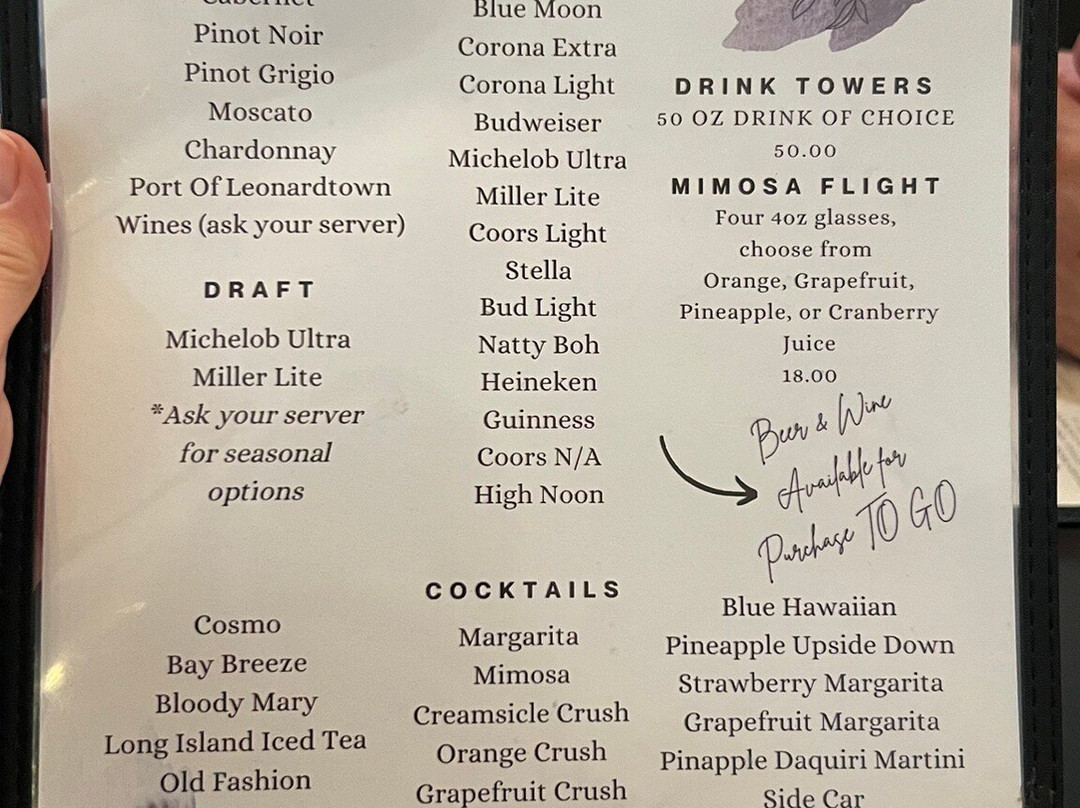 Cabernet
Pinot Noir
Pinot Grigio
Moscato
Chardonnay
Port Of Leonardtown
Wines (ask your server)
DRAFT
Michelob Ultra
Miller Lite
*Ask your server
for seasonal
options
Blue Moon
Corona Extra
Corona Light
Budweiser
Michelob Ultra
Miller Lite
Coors Light
Stella
Bud Light
Natty Boh
Heineken
Guinness
Coors N/A
High Noon
DRINK TOWERS
50 OZ DRINK OF CHOICE
50.00
MIMOSA FLIGHT
Four 4oz glasses,
choose from
Orange, Grapefruit,
Pineapple, or Cranberry
Juice
18.00
Beer & Wine
Available for
Purchase TO GO
COCKTAILS
Cosmo
Bay Breeze
Bloody Mary
Long Island Iced Tea
Old Fashion
Margarita
Mimosa
Creamsicle Crush
Orange Crush
Grapefruit Crush
Blue Hawaiian
Pineapple Upside Down
Strawberry Margarita
Grapefruit Margarita
Pinapple Daquiri Martini
Side Car